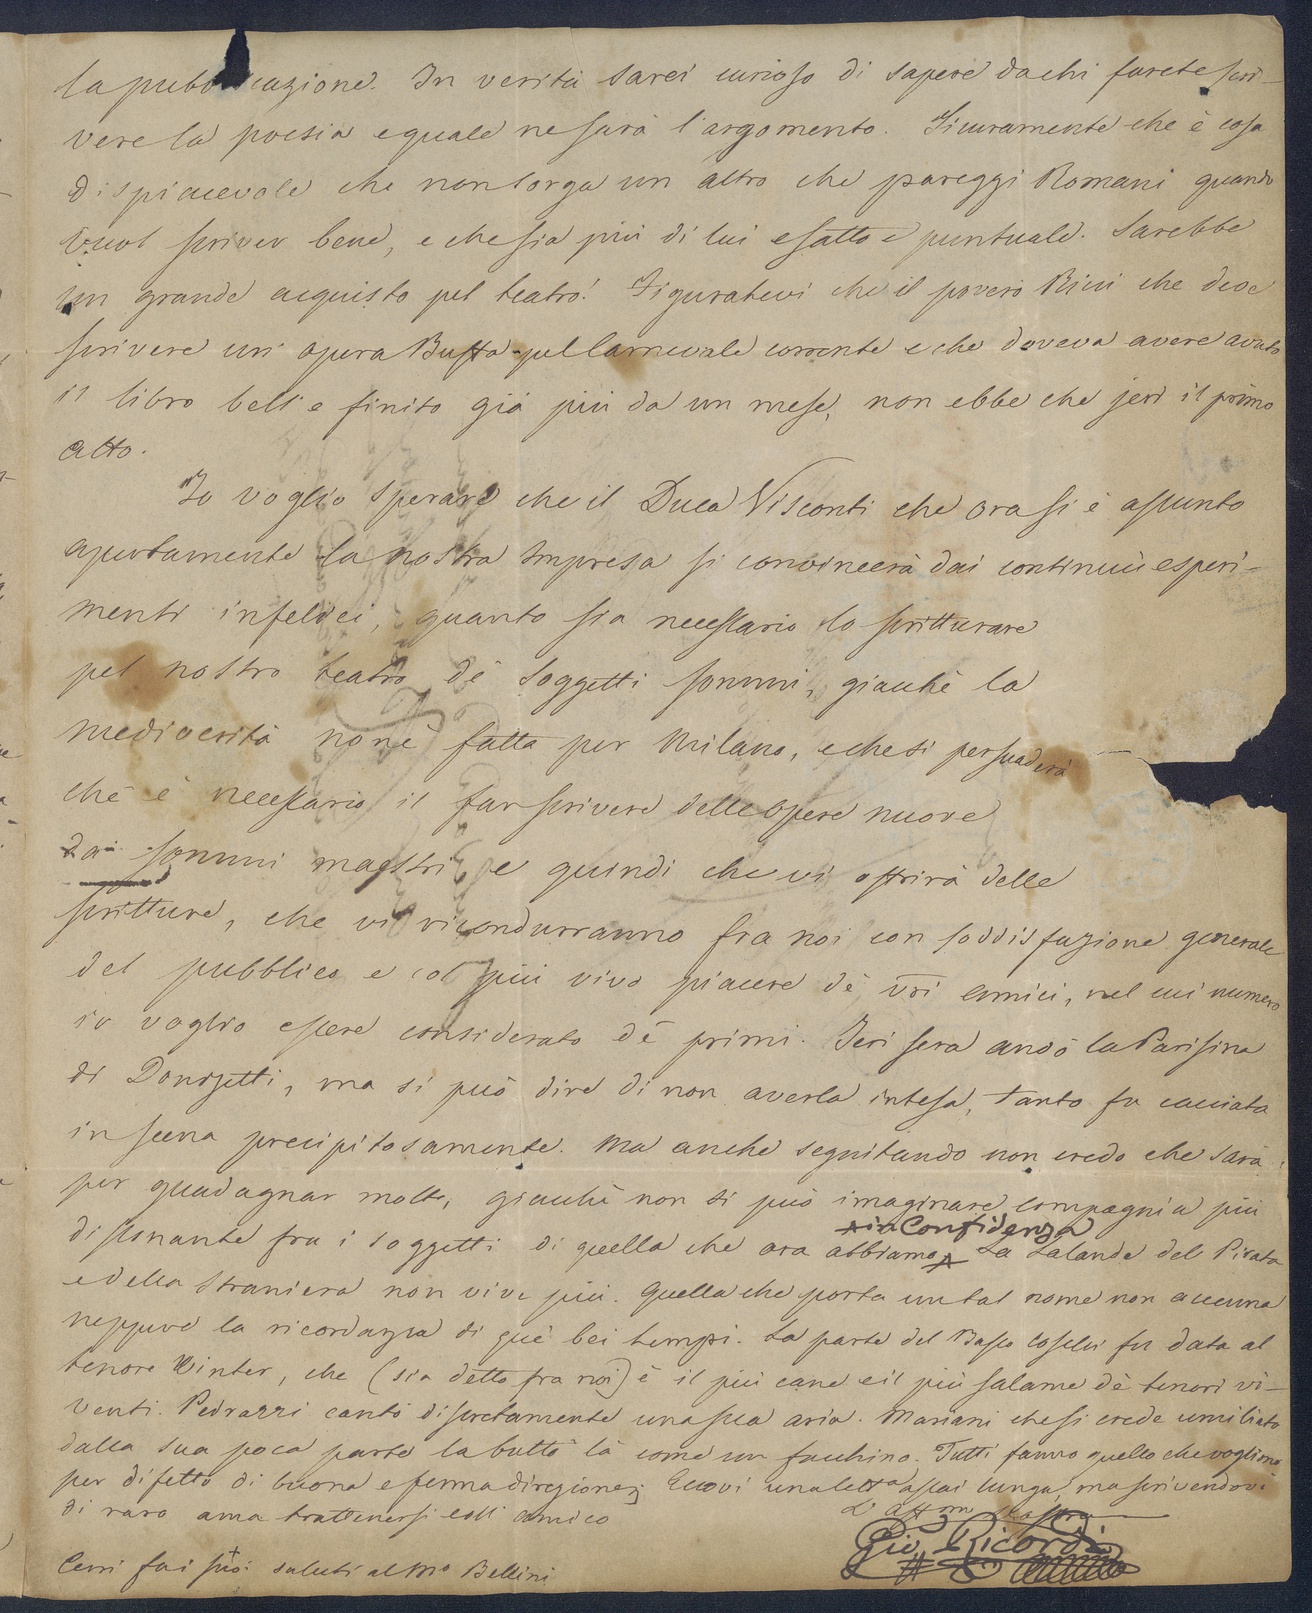 la pubb cazione. In verità sarei curioso di sapere da chi farete scri-
vere la poesia e quale ne sarà l'argomento. Sicuramente che è cosa
dispiacevole che non sorga un altro che pareggi Romani quando
vuol scriver bene, e che sia più di lui esatto e puntuale. Sarebbe
un grande acquisto pel teatro! Figuratevi che il povero Ricci che deve
scrivere un opera Buffa pel Carnevale corrente e che doveva avere avuto
il libro bell e finito già più da un mese, non ebbe che jeri il primo
atto.
Io voglio sperare che il Duca Visconti che ora si è assunto
apertamente la nostra Impresa si convincerà dai continui esperi-
menti infelici, quanto sia necessario lo scritturare
pel nostro teatro de' soggetti sommi, giacchè la
mediocrità non è fatta per Milano, e che si persuaderà
che è necessario il far scrivere delle opere nuove
dai sommi maestri e quindi che vi offrirà delle
scritture, che vi ricondurranno fra noi con soddisfazione generale
del pubblico e col più vivo piacere de' vri amici, nel cui numero
io voglio essere considerato de' primi. Jeri sera andò la Parisina
di Donizetti, ma si può dire di non averla intesa, tanto fu cacciata
in scena precipitosamente. Ma anche seguitando non credo che sarà
per guadagnar molto, giacchè non si può imaginare compagnia più
in Confidenza
dissonante fra i soggetti di quella che ora abbiamo. La Lalande del Pirata
e della Straniera non vive più. Quella che porta un tal nome non accenna
neppure la ricordanza di que' bei tempi. La parte del Basso Coselli fu data al
tenore Winter, che (sia detto fra noi) è il più cane e il più salame de' tenori vi-
venti. Pedrazzi cantò discretamente una sua aria. Mariani che si crede umiliato
dalla sua poca parte la buttò là come un facchino. Tutti fanno quello che vogliono
per difetto di buona e ferma direzione; Eccovi una letta assai lunga, ma scrivendovi
di raro ama trattenersi coll amico
L'affmo Vostro
Gio Ricordi
Cerri fai suoi saluti al Mo Bellini